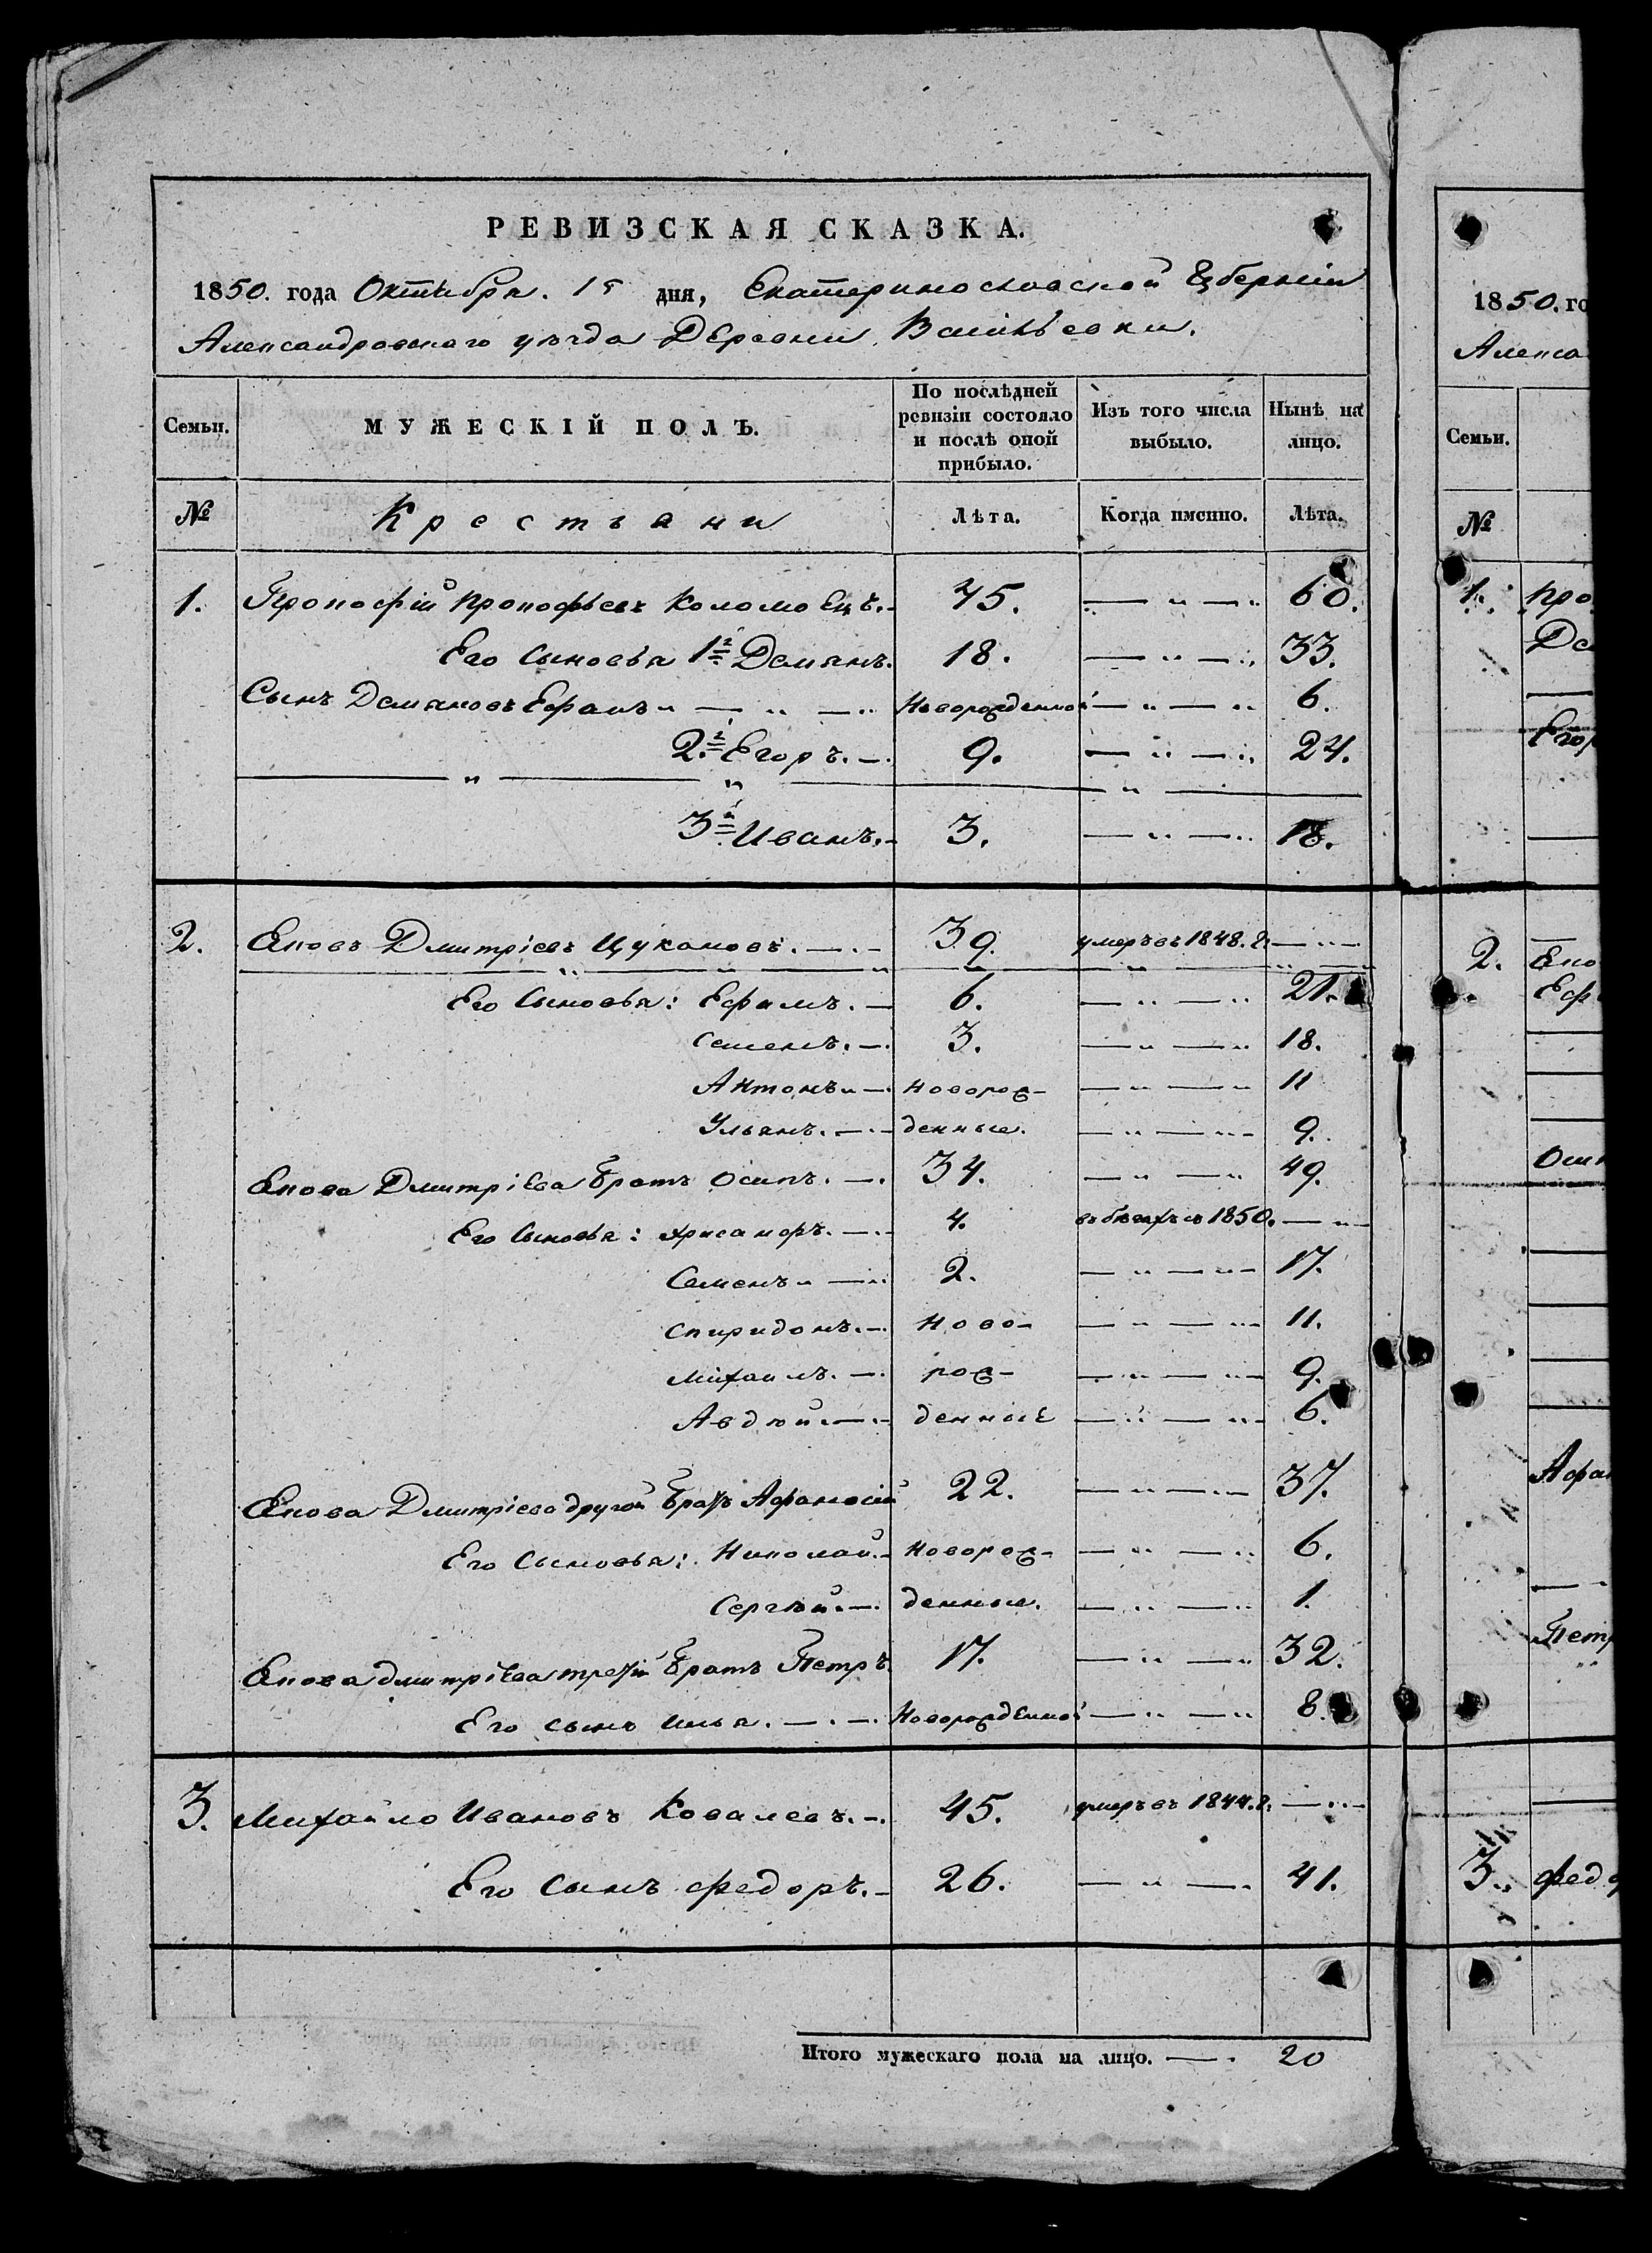 РЕВИЗСКАЯ СКАЗКА.
1850. года Октября. 15 дня, Екатеринославской Губерніи
Александровскаго уѣзда Деревни
Семьи.
МУЖЕСКІЙ ПОЛЪ.
По послѣдней ревизіи состояло и послѣ оной прибыло.
Изъ того числа выбыло.
Нынѣ на лицо.
№ Крестьяни Лѣта. Когда именно. Лѣта.
1. Прокофій Прокофьевъ Коломоецъ. 45. — „ — „ 60.
Его Сыновья 1й Демянъ. 18. — „ — „ 33.
Сынъ Демяновъ Ефимъ „ — „ — „ Новорожденной — „ — „ 6.
2.й Егоръ. — 9. — „ — „ 24.
3й Иванъ. — 3. — „ — „ 18.
2. Яковъ Дмитріевъ Цукановъ. — 39. умеръ въ 1848. г. — „ —
Его Сыновья: Ефимъ. — 6. — „ — „ 21.
Семенъ. — 3. — „ — „ 18.
Антонъ „ — Новорож- — „ — „ 11
Ульянъ. — денные. — „ — „ 9.
Якова Дмитріева братъ Осипъ. — 34. — „ — „ 49.
Его Сыновья: Хрисанфъ. — 4. въ бѣгахъ съ 1850. — „ —
Семенъ „ — 2. — „ — „ 17.
Спиридонъ. — Ново- — „ — „ 11.
Михаилъ. — рож- — „ — „ 9.
Авдюй. — денные — „ — „ 6.
Якова Дмитріева другой братъ Афанасій 22. — „ — „ 37.
Его Сыновья: Николай. — Новорож- — „ — „ 6.
Сергѣй. — денные. — „ — „ 1.
Якова Дмитріева третій братъ Петръ. 17. — „ — „ 32.
Его сынъ Илья. — Новорожденной — „ — „ 8.
3. Михайло Ивановъ Ковалевъ. — 45. умеръ въ 1844. г. — „ —
Его сынъ Федоръ. — 26. — „ — 41.
Итого мужескаго пола на лицо. — 20
1850. го
Алекса
Семьи.
№
1. Про
Де
Егор
2. Яко
Еф
Осип
Афан
Петр
3. Федо